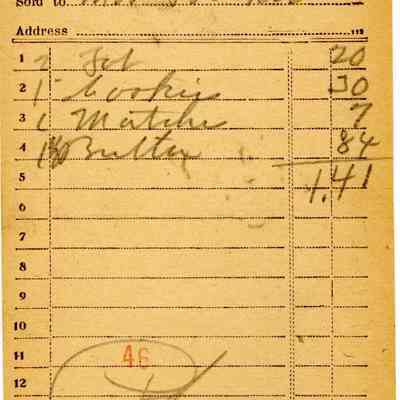 Sold to
Address
1 2 20
2 1 Cookies 30
3 1 Matches 7
4 Butter 84
5 1.41
6
7
8
9
10
11 46
12